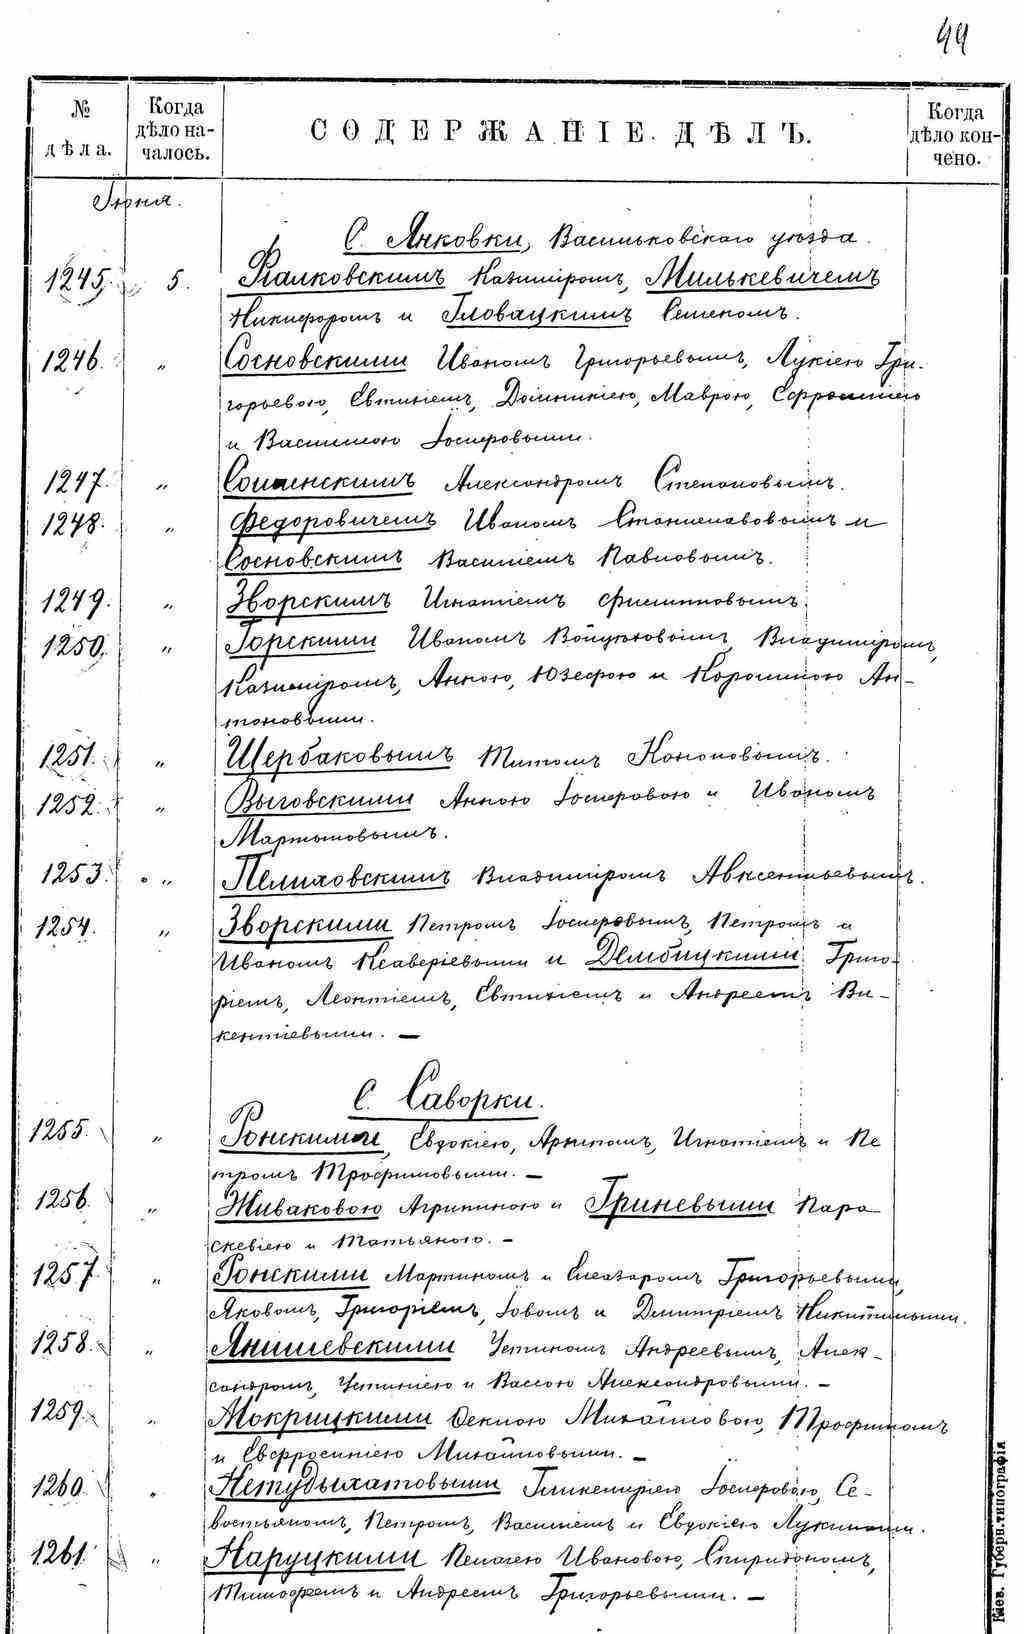 44
№ дѣла. Когда дѣло началось. СОДЕРЖАНІЕ ДѢЛЪ. Когда дѣло кончено.
Іюня.
С. Янковки, Васильковскаго уѣзда.
1245. 5. Ралковскимъ Казиміромъ, Милькевичемъ
Никифоромъ и Гловацкимъ Семеномъ.
1246. „ Сосновскими Иваномъ Григорьевымъ, Лукіею Гри-
горьевою, Евтихіемъ, Домникіею, Маврою, Ефросиніею
и Василиною Іосифовыми.
1247. „ Александромъ Степановымъ.
1248. „ Федоровичемъ Иваномъ Станиславовымъ и
Сосновскимъ Василіемъ Павловымъ.
1249. „ Зворскимъ Игнатіемъ Филипповымъ.
1250. „ Горскими Иваномъ Войцѣховымъ, Владиміромъ,
Казиміромъ, Анною, Юзефою и Каролиною Ан-
тоновыми.
1251. „ Щербаковымъ Титомъ Кононовымъ.
1252. „ Выговскими Анною Іосифовою и Иваномъ
Мартыновымъ.
1253. „ Пелиховскимъ Владиміромъ Авксентьевымъ.
1254. „ Зворскими Петромъ Іосифовымъ, Петромъ и
Иваномъ Ксаверіевыми и Дембицкими Григо-
ріемъ, Леонтіемъ, Евтихіемъ и Андреемъ Ви-
кентіевыми. —
С. Саворки.
1255. „ Ронскими, Евдокіею, Архипомъ, Игнатіемъ и Пе
тромъ Трофимовыми. —
1256. „ Живаковою Агрипиною и Гриневыми Пара
скевіею и Татьяною. —
1257. „ Ронскими Мартиномъ и Елеазаромъ Григорьевыми,
Яковомъ, Григоріемъ, Іовомъ и Дмитріемъ Никитиными.
1258. „ Янишевскими Устиномъ Андреевымъ, Алек-
сандромъ, Устиніею и Вассою Александровыми. —
1259. „ Мокрицкими Феклою Михайловою, Трофимомъ
и Евфросиніею Михайловыми. —
1260. „ Нетудыхатовыми Гликеріею Іосифовою, Се-
востьяномъ, Петромъ, Василіемъ и Евдокіею Лукиными.
1261. „ Наруцкими Пелагею Ивановою, Спиридономъ,
Тимофеемъ и Андреемъ Григорьевыми. —
Кіев. Губерн. типографія